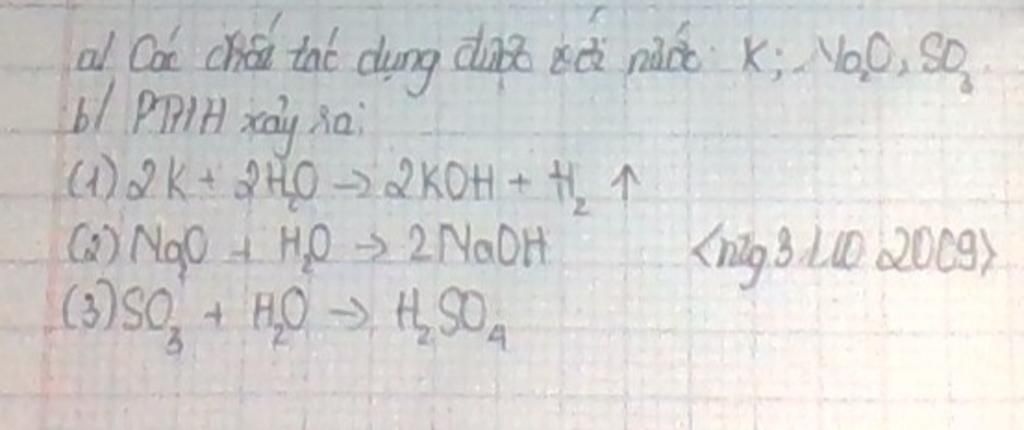 a/ Các chất tác dụng được với nước: K; Na₂O, SO₃.
b/ PTHH xảy ra:
(1) 2K + 2H₂O → 2KOH + H₂ ↑
(2) Na₂O + H₂O → 2NaOH
(3) SO₃ + H₂O → H₂SO₄